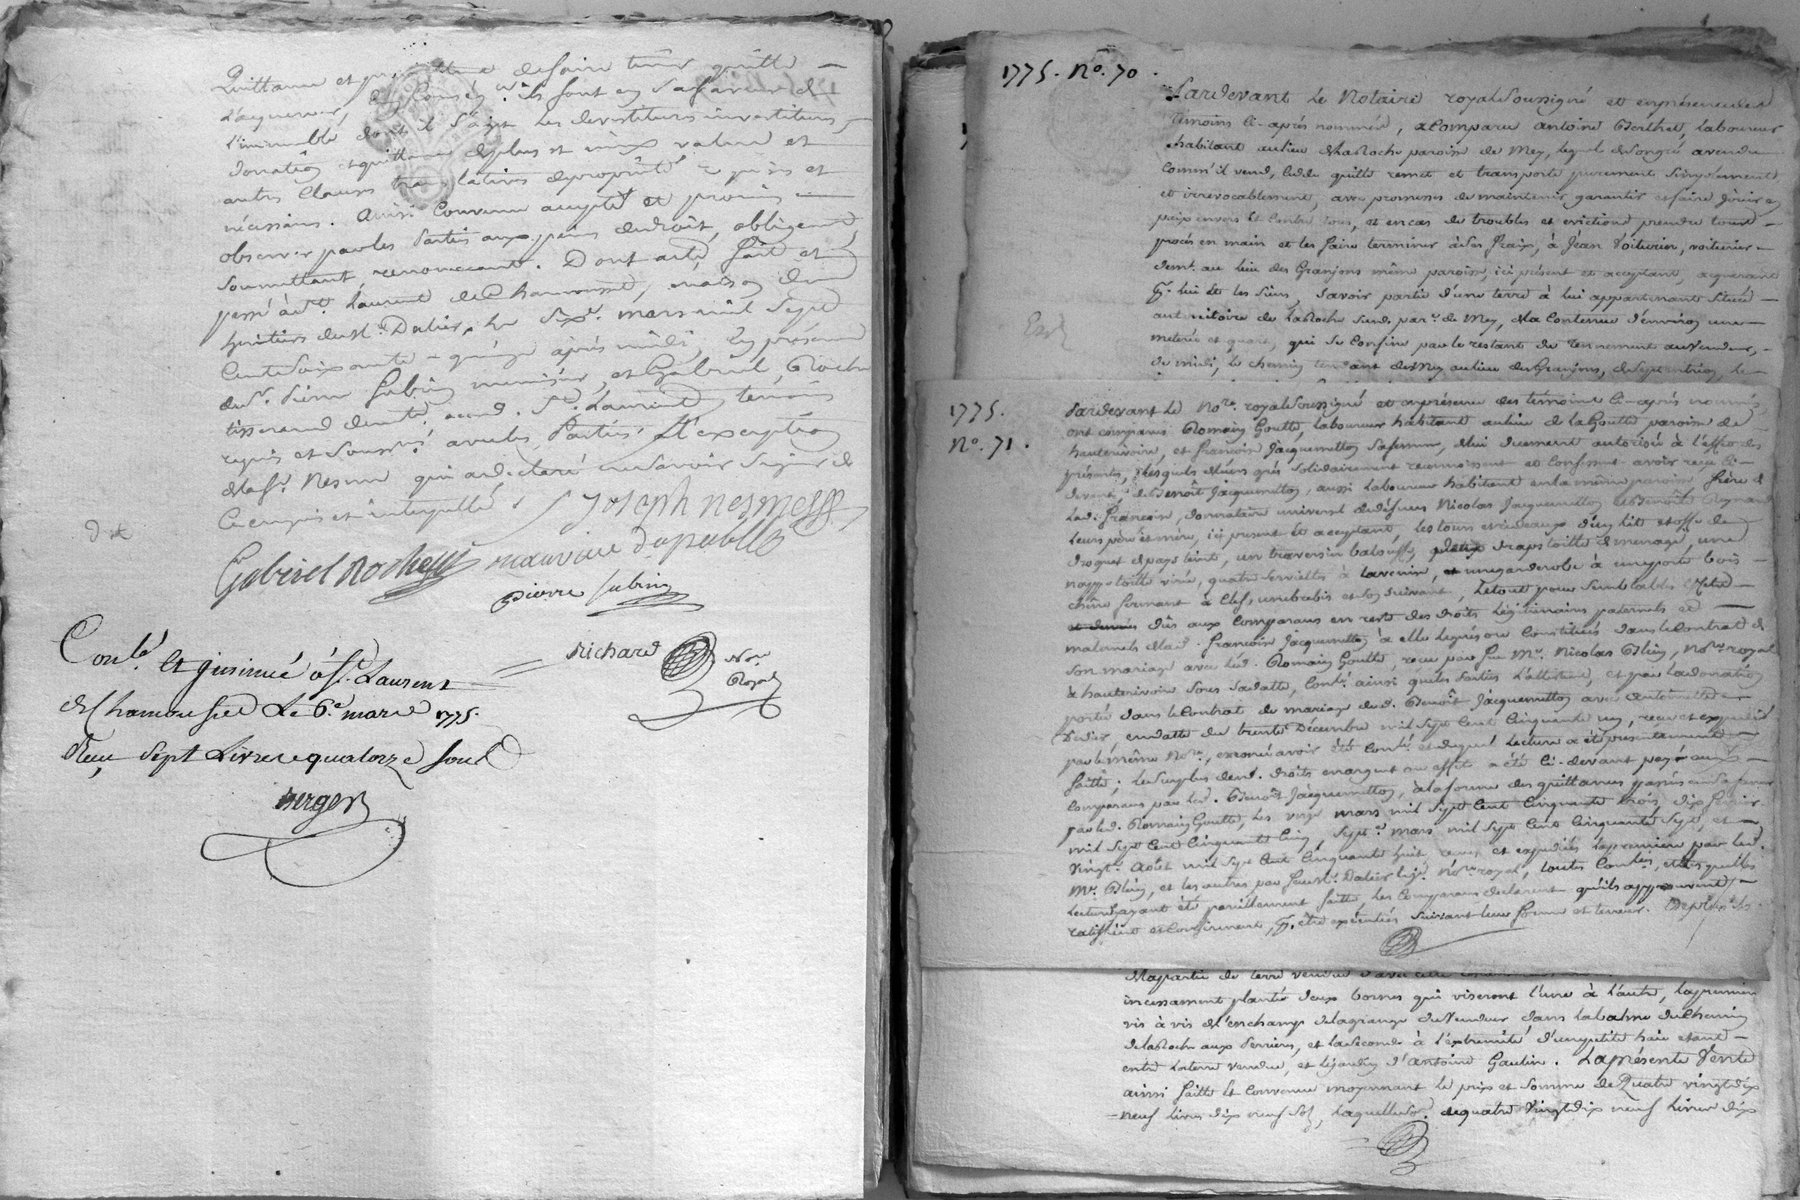 Quittance et de faire tenir quitte
L'acquereur, ils sont en faveur de
L'immeuble dont il s'agit les devestitures investitures,
Donnation et quittance de plus et mieux value et
autres Clauses translatives de proprieté requises et
nécessaires. Ainsi Convenu accepté et promis
observer par les Parties aux peines de droit, obligeant,
Soumettant, renonceant. Dont acte, fait et
passé à St. Laurent de Chamousset, maison des
heritiers du Sr. Dalier, le Sixe. mars mil Sept
Cent Soixante-quinze après midi, En présence
du Sr. Pierre Subrin menuisier, et Gabriel Roche
tisserand demt. aud. St. Laurent, temoins
requis et Soussnés. avec les Parties à L'exception
de la fe. Nesme qui a declaré ne Savoir Signer de
Ce enquise et interpellée.
Joseph nesme
Gabriel Roche maurice dupeuble
pierre subrin
Richard Nore. Royal
Conlé. et insinué à St. Laurent
de Chamousset Le 6e. mars 1775.
Reçu Sept Livres quatorze Sous
Berger
1775. No. 70.
Pardevant Le Notaire royal Soussigné et en présence des
témoins Ci-après nommés, a Comparu Antoine Berthet, Laboureur
habitant au lieu de la Roche paroisse de Mey, lequel de Son gré a vendu
Comm'il vend, Cedde quitte remet et transporte purement Simplement
et irrevocablement, avec promesse de maintenir garantir et faire Joüir en
paix envers et Contre tous, et en cas de troubles et eviction prendre tout
procès en main et les faire terminer à Ses fraix, à Jean Voiturier, voiturier
demt. au lieu des Granjons même paroisse, ici présent et acceptant, acquerant
pr. lui et les Siens, Savoir partie d'une terre à lui appartenant Située
au territoire de La Roche Susd. parse. de Mey, de la Contenue d'environ une
meterée et quart, qui Se Confine par le restant du tennement au Vendeur,
de midi, le chemin tendant de Mey au lieu des Granjons, de Septentrion, le
1775.
No. 71.
Pardevant Le Nore. royal Soussigné et en présence des témoins Ci-après nommés
ont comparu Romain Goutte, Laboureur habitant au lieu de la Goutte paroisse de
hauterivoire, et Françoise Jacquemetton Sa femme, de lui duement autorisée à l'effet des
présentes, Lesquels de leurs grés Solidairement reconnoissent et Confessent avoir reçu Ci-
devant, de Benoît Jacquemetton, aussi Laboureur habitant en la même paroisse, frère de
Lad. Françoise, donnataire universel de défunts Nicolas Jacquemetton et Benoîte
Leurs père et mère, ici présent et acceptant, Les tours et rideaux d'un lit etoffe de
droguet de pays teint, un traversin balouffe, draps toille de menage, une
nappe toille virée, quatre Serviettes à la venise, et une garderobe à une porte bois
chêne fermant à Clef, une brebis et Son Suivant, Le tout pour Semblable
dûs aux Comparans en reste des droits Légitimaires paternels et
maternels de lad. Françoise Jacquemetton à elle Constitués dans le Contrat de
Son mariage avec led. Romain Goutte, reçu par feu Me. Nicolas Blein, Nore. royal
à hauterivoire Sous Sa datte, Conlé. ainsi que les Parties L'attestent, et par la donnation
portée dans le Contrat de mariage dud. Benoît Jacquemetton avec Antoinette
en datte du trente Décembre mil Sept Cent Cinquante un, reçu et expedié
par le même Nore., exmué avoir été Conlé. et duquel Lecture a été présentement
faitte; Le Surplus desd. droits en argent ou effets a été Ci-devant payé aux
Comparans par led. Benoît Jacquemetton, à la forme des quittances passées en Sa faveur
par led. Romain Goutte, Les vingt mars mil Sept Cent Cinquante trois, dix fevrier
mil Sept Cent Cinquante Cinq, Septe. mars mil Sept Cent Cinquante Sept, et
Vingte. Août mil Sept Cent Cinquante huit, reçues et expediées la premiere par led.
Me. Blein, et les autres par feu Me. Dalier Nore. royal, toutes Conlées, desquelles
Lecture ayant été pareillement faitte, Les Comparans declarent qu'ils approuvent,
ratiffient et Confirment, pr. être executées Suivant leur forme et teneur.
De la partie de terre vendue
incessament planté deux bornes qui viseront l'une à l'autre, la premiere
vis à vis de l'enchamp de la grange du Vendeur dans la balme du Chemin
de la Roche aux Perriers, et la Seconde à l'extremité d'une petite haie etant
entre La terre vendue, et le Jardin d'Antoine Gaulin. La présente Vente
ainsi faitte et Convenue moyennant le prix et Somme de Quatre vingt dix
neuf livres dix neuf Sols, Laquelle de quatre vingt dix neuf livres dix